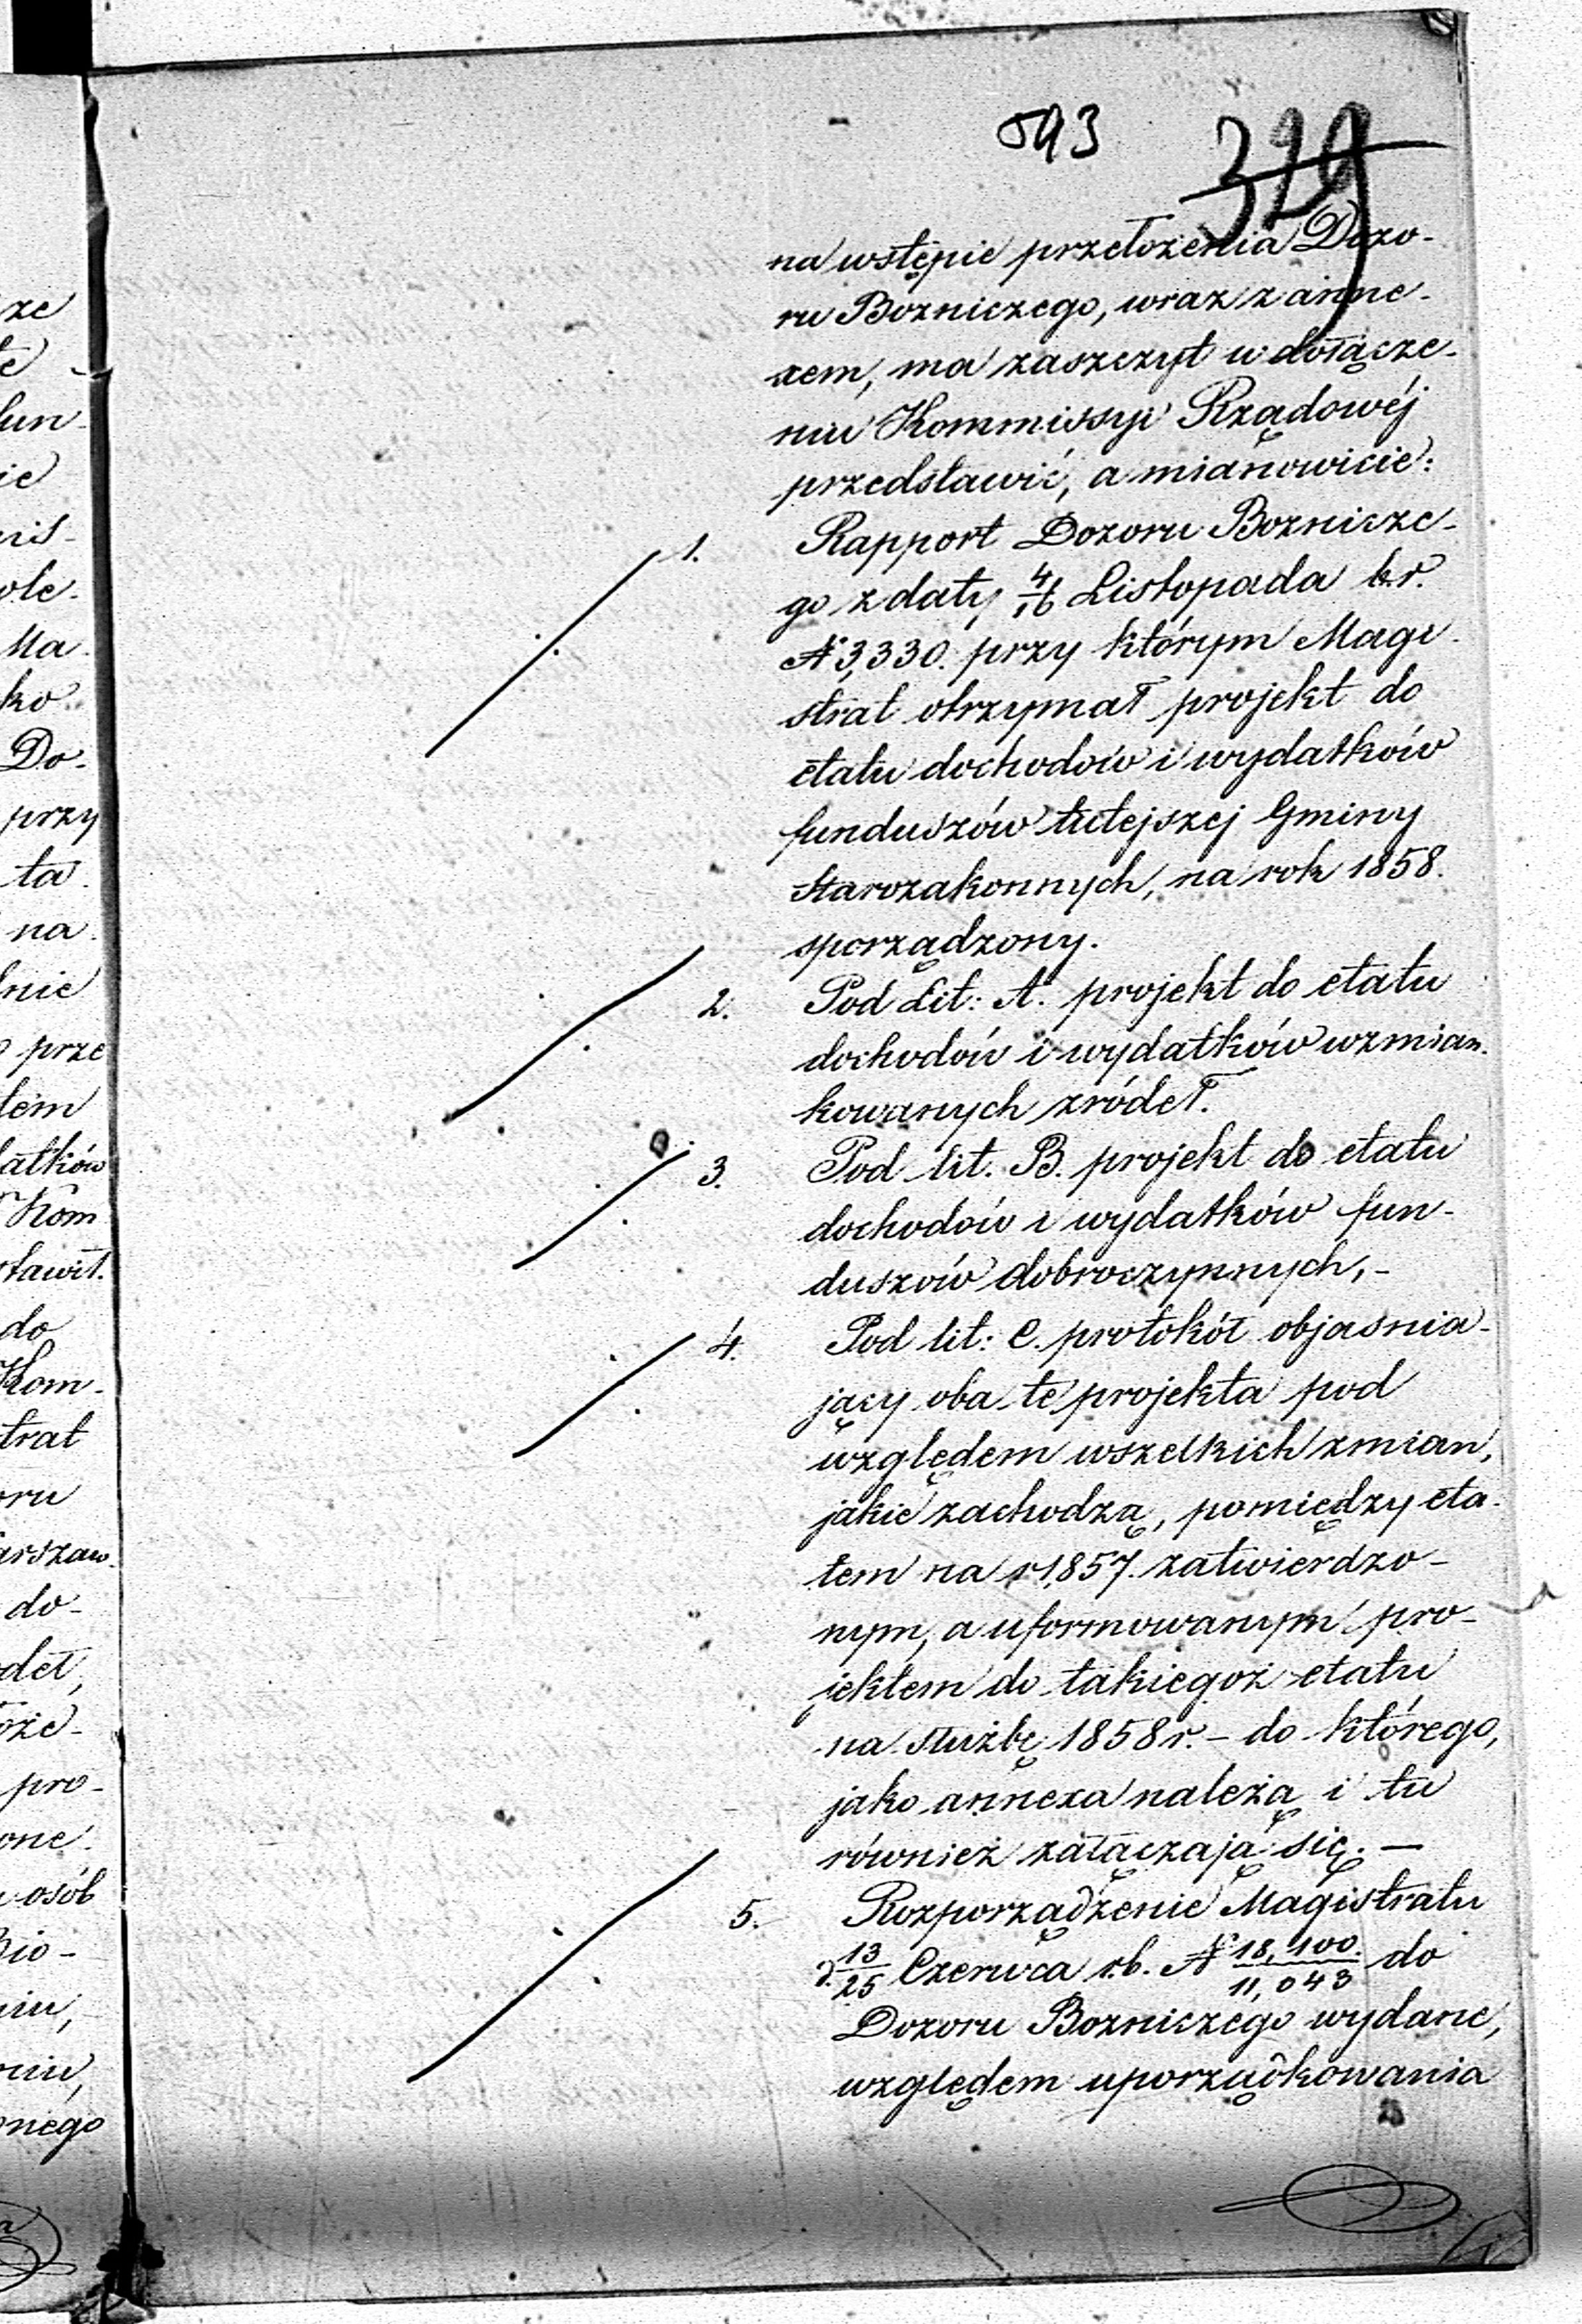 593
329
na wstępie przełożenia Dozo-
ru Bozniczego, wraz z anne-
xem, ma zaszczyt w dołącze-
niu Kommissyi Rządowéj
przedstawić, a mianowicie:
1. Rapport Dozoru Boznicze-
go z daty 4/16 Listopada b.r.
N 3,330. przy którym Magi-
strat otrzymał projekt do
etatu dochodów i wydatków
funduszów tutejszej Gminy
Starozakonnych, na rok 1858.
sporządzony.
2. Pod Lit: A. projekt do etatu
dochodów i wydatków wzmian-
kowanych zródeł.
3. Pod lit. B. projekt do etatu
dochodów i wydatków fun-
duszów dobroczynnych,-
4. Pod lit: C. protokół objasnia-
jący oba te projekta pod
względem wszelkich zmian,
jakie zachodzą, pomiędzy eta-
tem na r 1857. zatwierdzo-
nym, a uformowanym pro-
jektem do takiegoż etatu
na służbę 1858 r. - do którego,
jako annexa należą i tu
również załączają się. —
5. Rozporządzenie Magistratu
d. 13/25 Czerwca r.b. N 18,100./11,043 do
Dozoru Bozniczego wydane,
względem uporządkowania
ze
te
fun-
ie
ole-
Ma-
ko
Do-
przy
ta
na
nie
prze
tem
datków
Kom
stawił.
do
Kom-
trat
oru
arszaw.
do-
deł,
oże-
pro-
one
osób
niu,
nego